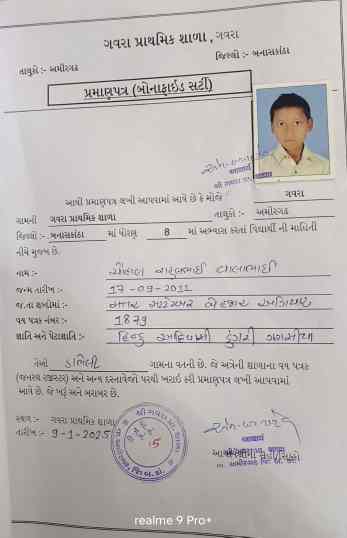 ગવરા પ્રાથમિક શાળા , ગવરા
તાલુકો :- અમીરગઢ
જિલ્લો :- બનાસકાંઠા
પ્રમાણપત્ર (બોનાફાઇડ સર્ટી)
આચાર્ય
શ્રી ગવરા
આથી પ્રમાણપત્ર લખી આપવામાં આવે છે કે મોજે ગવરા
ગામની ગવરા પ્રાથમિક શાળા તાલુકો :- અમીરગઢ
જિલ્લો :- બનાસકાંઠા માં ધોરણ 8 માં અભ્યાસ કરતાં વિદ્યાર્થી ની માહિતી
નીચે મુજબ છે.
નામ :-
જન્મ તારીખ :- 17-09-2011
જ.તા શબ્દોમાં :- સત્તર સપ્ટેમ્બર બે હજાર અગિયાર
વય પત્રક નંબર :- 1879
જાતિ અને પેટાજાતિ :- હિન્દુ આદિવાસી ડુંગરી ગરાસીયા
તેઓ ગામના વતની છે. જે અત્રેની શાળાના વય પત્રક
(જનરલ રજીસ્ટર) અને અન્ય દસ્તાવેજો પરથી ખરાઇ કરી પ્રમાણપત્ર લખી આપવામાં
આવે છે. જે ખરું અને બરાબર છે.
સ્થળ :- ગવરા પ્રાથમિક શાળા
તારીખ :- 9-1-2025
આચાર્ય
realme 9 Pro+